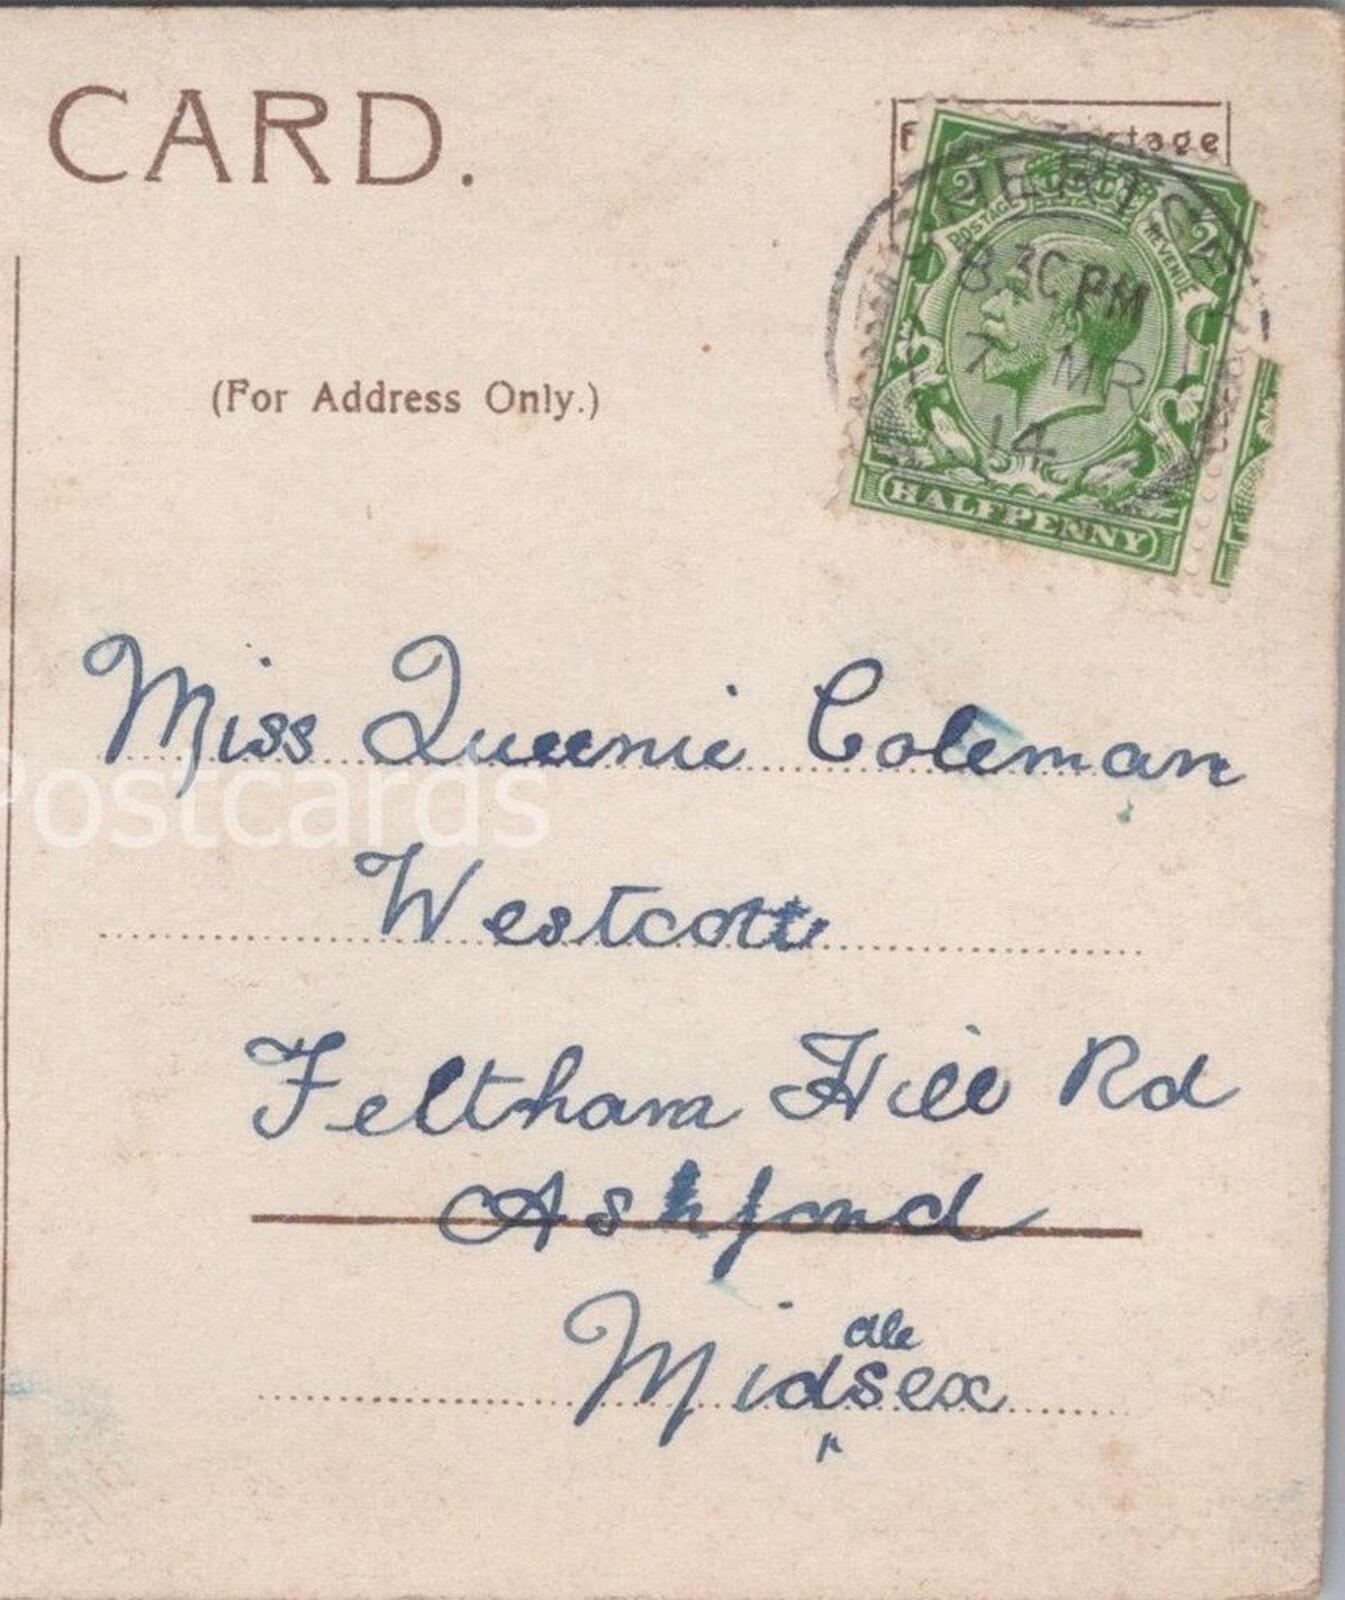 CARD.
(For Address Only.)
POSTAGE REVENUE
½ ½
8.30 PM
7 MR
14
HALFPENNY
Miss Queenie Coleman
Postcards
Westcott
Feltham Hill Rd
Ashford
dle
Midsex